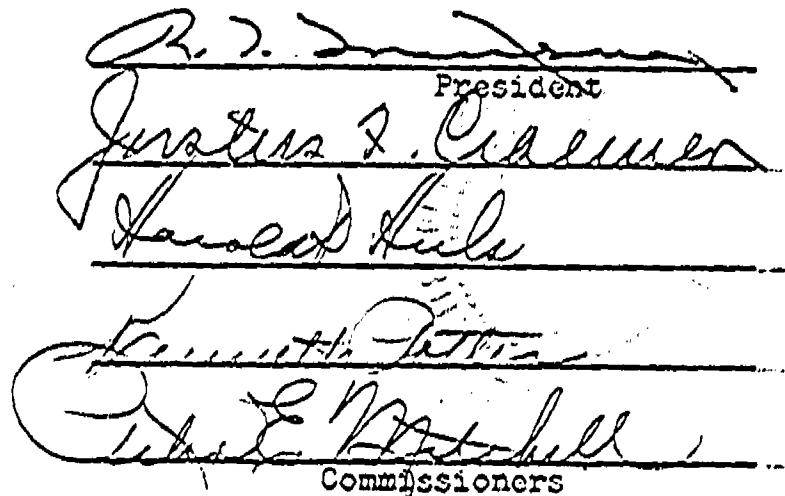 President
Justus F. Craemer
Harold P Huls
Kenneth Potter
Peter E. Mitchell
Commissioners